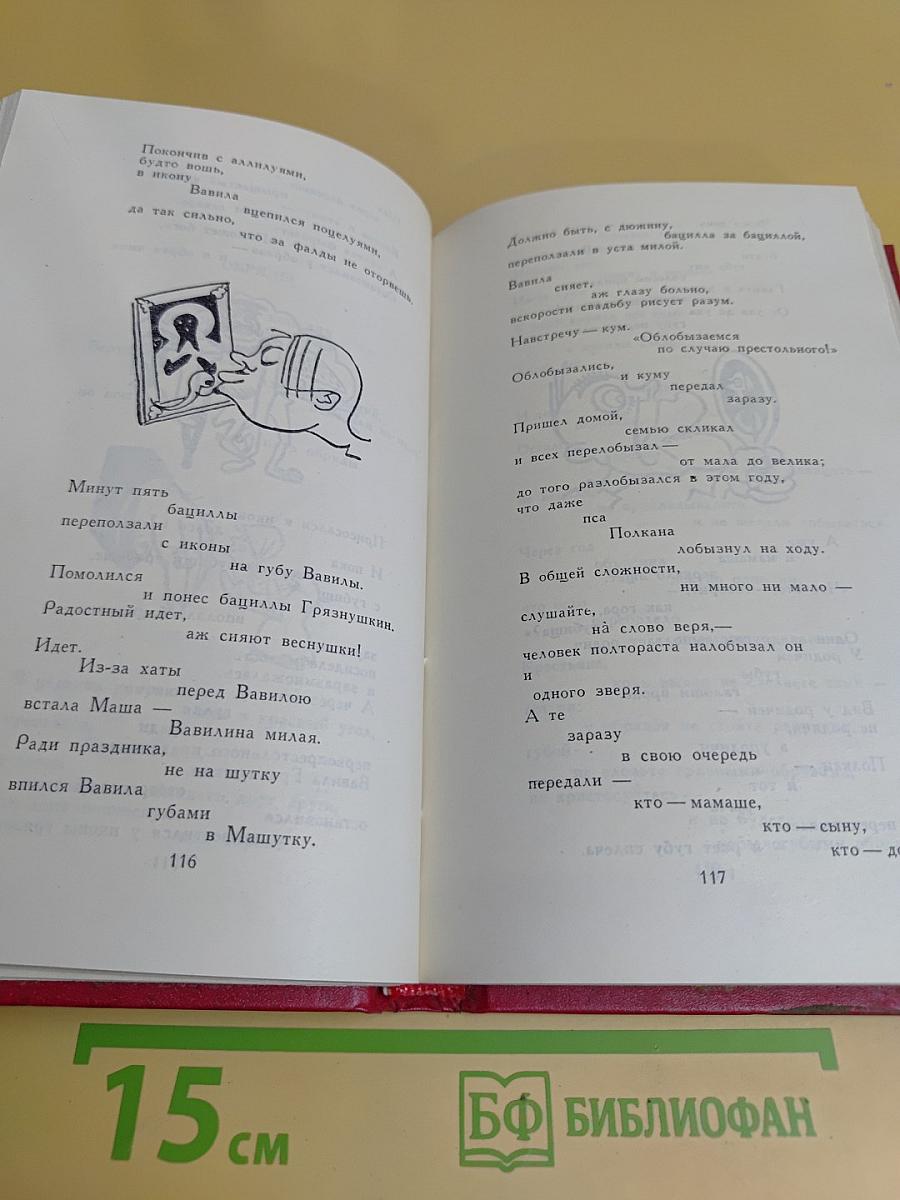 Покончив с аллилуями,
будто вошь,
в икону
Вавила
вцепился поцелуями,
да так сильно,
что за фалды не оторвешь.
Минут пять
бациллы
переползали
с иконы
на губу Вавилы.
Помолился
и понес бациллы Грязнушкин.
Радостный идет,
аж сияют веснушки!
Идет.
Из-за хаты
перед Вавилою
встала Маша —
Вавилина милая.
Ради праздника,
не на шутку
впился Вавила
губами
в Машутку.
116
Должно быть, с дюжину,
бацилла за бациллой,
переползали в уста милой.
Вавила
сияет,
аж глазу больно,
вскорости свадьбу рисует разум.
Навстречу — кум.
«Облобызаемся
по случаю престольного!»
Облобызались,
и куму
передал
заразу.
Пришел домой,
семью скликал
и всех перелобызал —
от мала до велика;
до того разлобызался в этом году,
что даже
пса
Полкана
лобызнул на ходу.
В общей сложности,
ни много ни мало —
слушайте,
на̀ слово веря,—
человек полтораста налобызал он
и
одного зверя.
А те
заразу
в свою очередь
передали —
кто — мамаше,
кто — сыну,
кто —
117
15 см
БФ БИБЛИОФАН